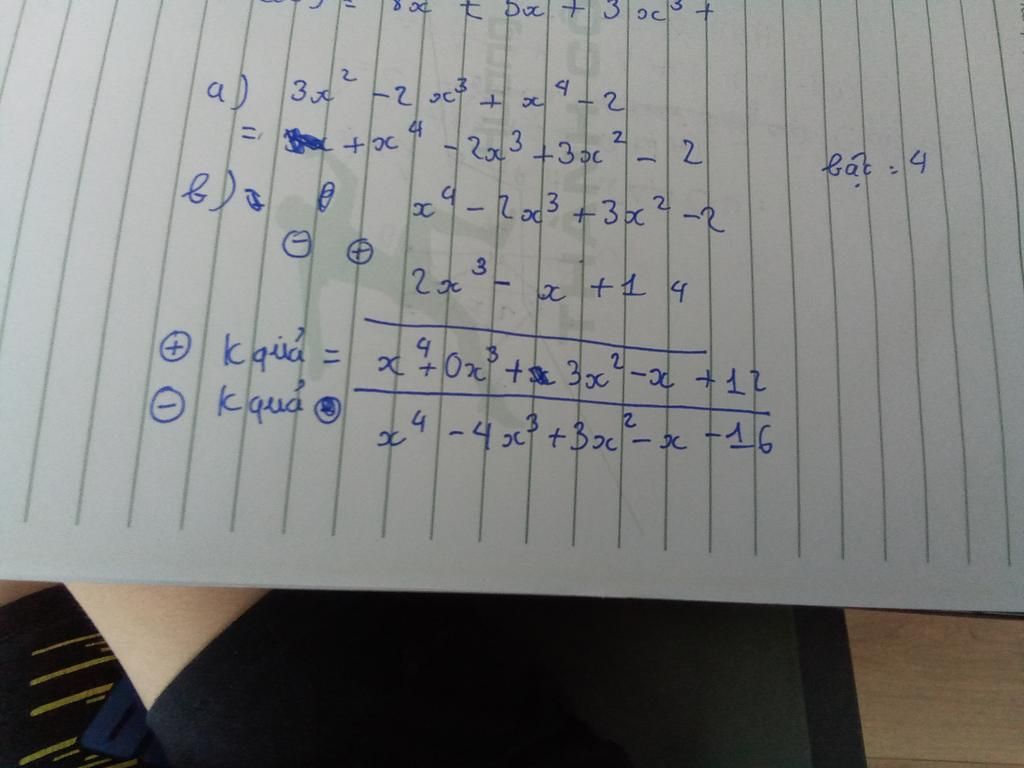 = 8x + 5x + 3x³ +
a) 3x² - 2x³ + x⁴ - 2
= + x⁴ - 2x³ + 3x² - 2 bậc = 4
b) x⁴ - 2x³ + 3x² - 2
⊖ ⊕
2x³ - x + 14
⊕ K quả = x⁴ + 0x³ + 3x² - x + 12
⊖ K quả x⁴ - 4x³ + 3x² - x - 16